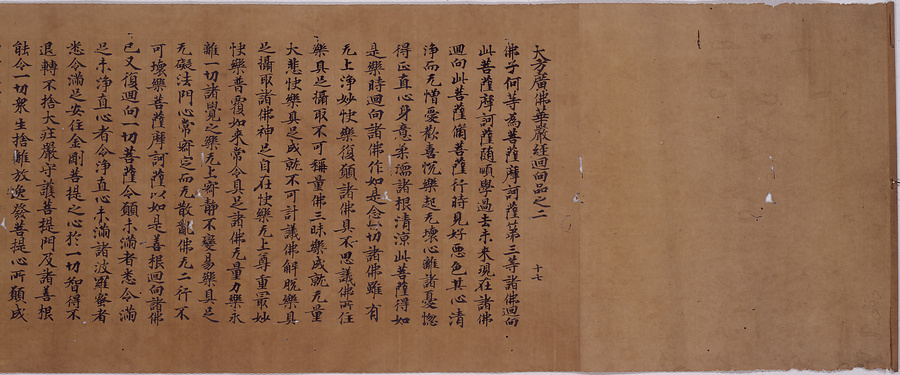 大方廣佛華嚴經迴向品之二 十七
佛子何等為菩薩摩訶薩第三等諸佛迴向
此菩薩摩訶薩隨順學過去未來現在諸佛
迴向此菩薩俻菩薩行時見好惡色其心清
淨而无憎愛歡喜恱樂起无壞心離諸憂惱
得正直心身意柔濡諸根清涼此菩薩得如
是樂時迴向諸佛作如是念一切諸佛雖有
无上淨妙快樂復願諸佛具不思議佛所住
樂具足攝取不可稱量佛三昧樂成就无量
大悲快樂具足成就不可計議佛解脫樂具
足攝取諸佛神足自在快樂无上尊重最妙
快樂普覆如來常令具足諸佛无量力樂永
離一切諸覺之樂无上寂靜不變易樂具足
无礙法門心常寂定而无散亂佛无二行不
可壞樂菩薩摩訶薩以如是善根迴向諸佛
已又復迴向一切菩薩令願未滿者悉令滿
足未淨直心者令淨直心未滿諸波羅蜜者
悉令滿足安住金剛菩提之心於一切智得不
退轉不捨大莊嚴守護菩提門及諸善根
能令一切衆生捨離放逸發菩提心所願成